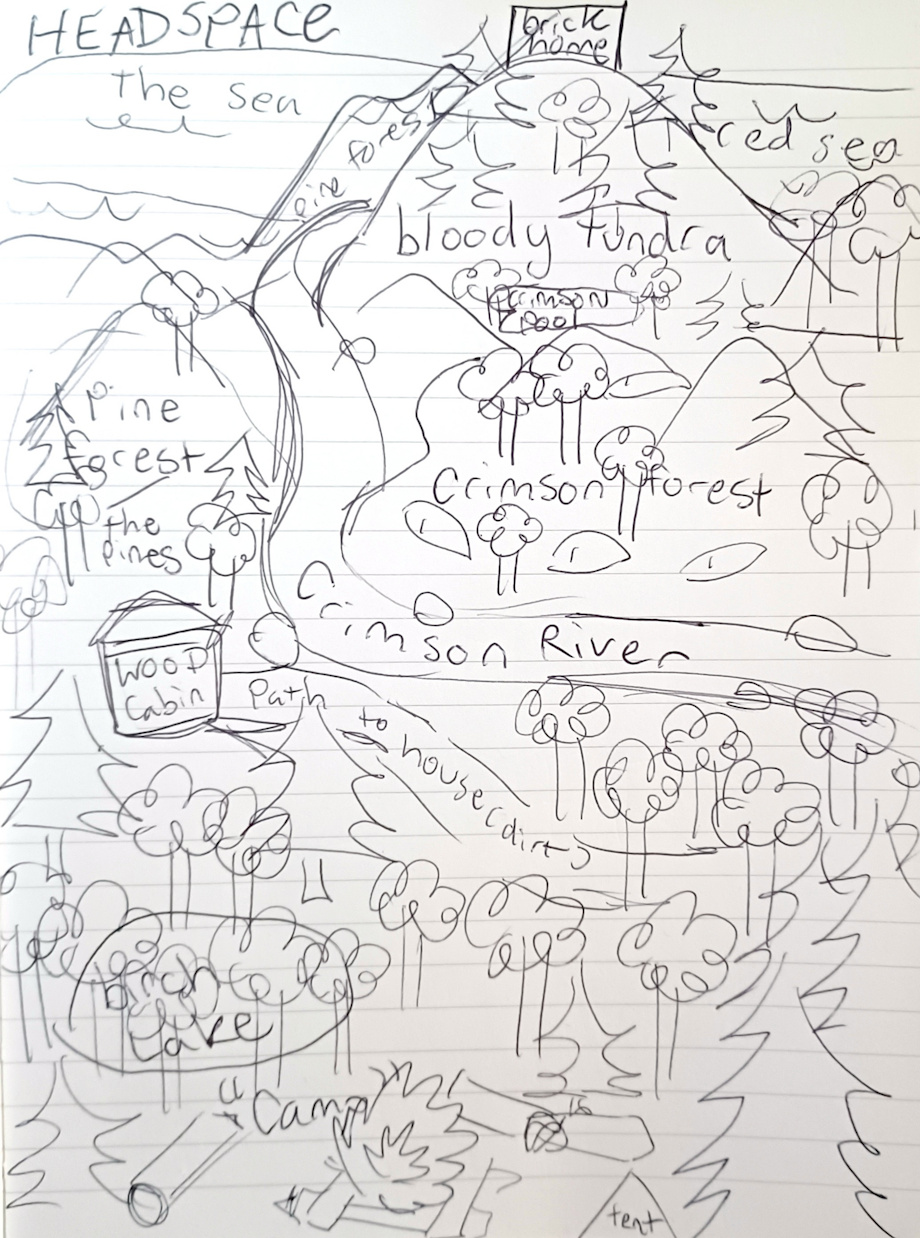 HEADSPACE
brick
home
the sea
pine forest
red sea
bloody tundra
crimson
pool
Pine
forest
the
pines
Crimson forest
Crimson River
WOOD
Cabin
Path to house (dirt)
birch
lake
Camp
tent